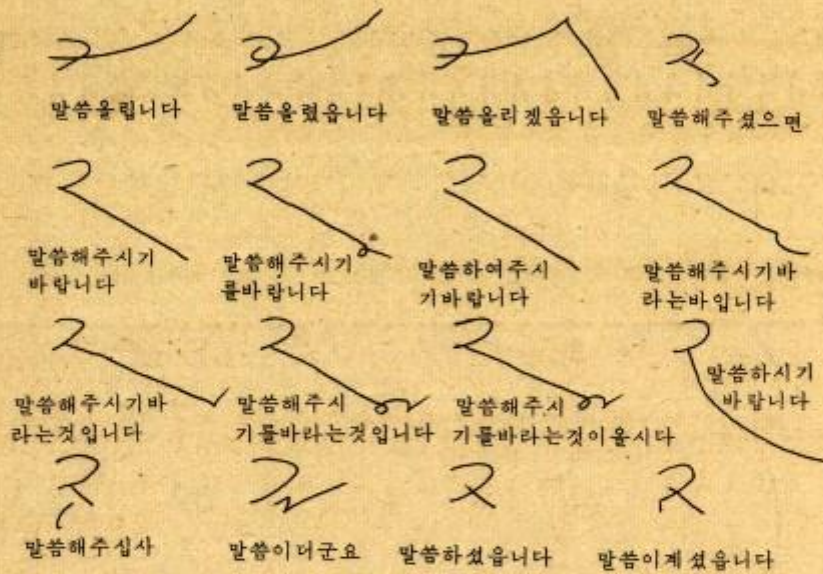 말씀올립니다
말씀올렸읍니다
말씀올리겠읍니다
말씀해주셨으면
말씀해주시기
바랍니다
말씀해주시기
를바랍니다
말씀하여주시
기바랍니다
말씀해주시기바
라는바입니다
말씀해주시기바
라는것입니다
말씀해주시
기를바라는것입니다
말씀해주시
기를바라는것이올시다
말씀하시기
바랍니다
말씀해주십사
말씀이더군요
말씀하셨읍니다
말씀이계셨읍니다